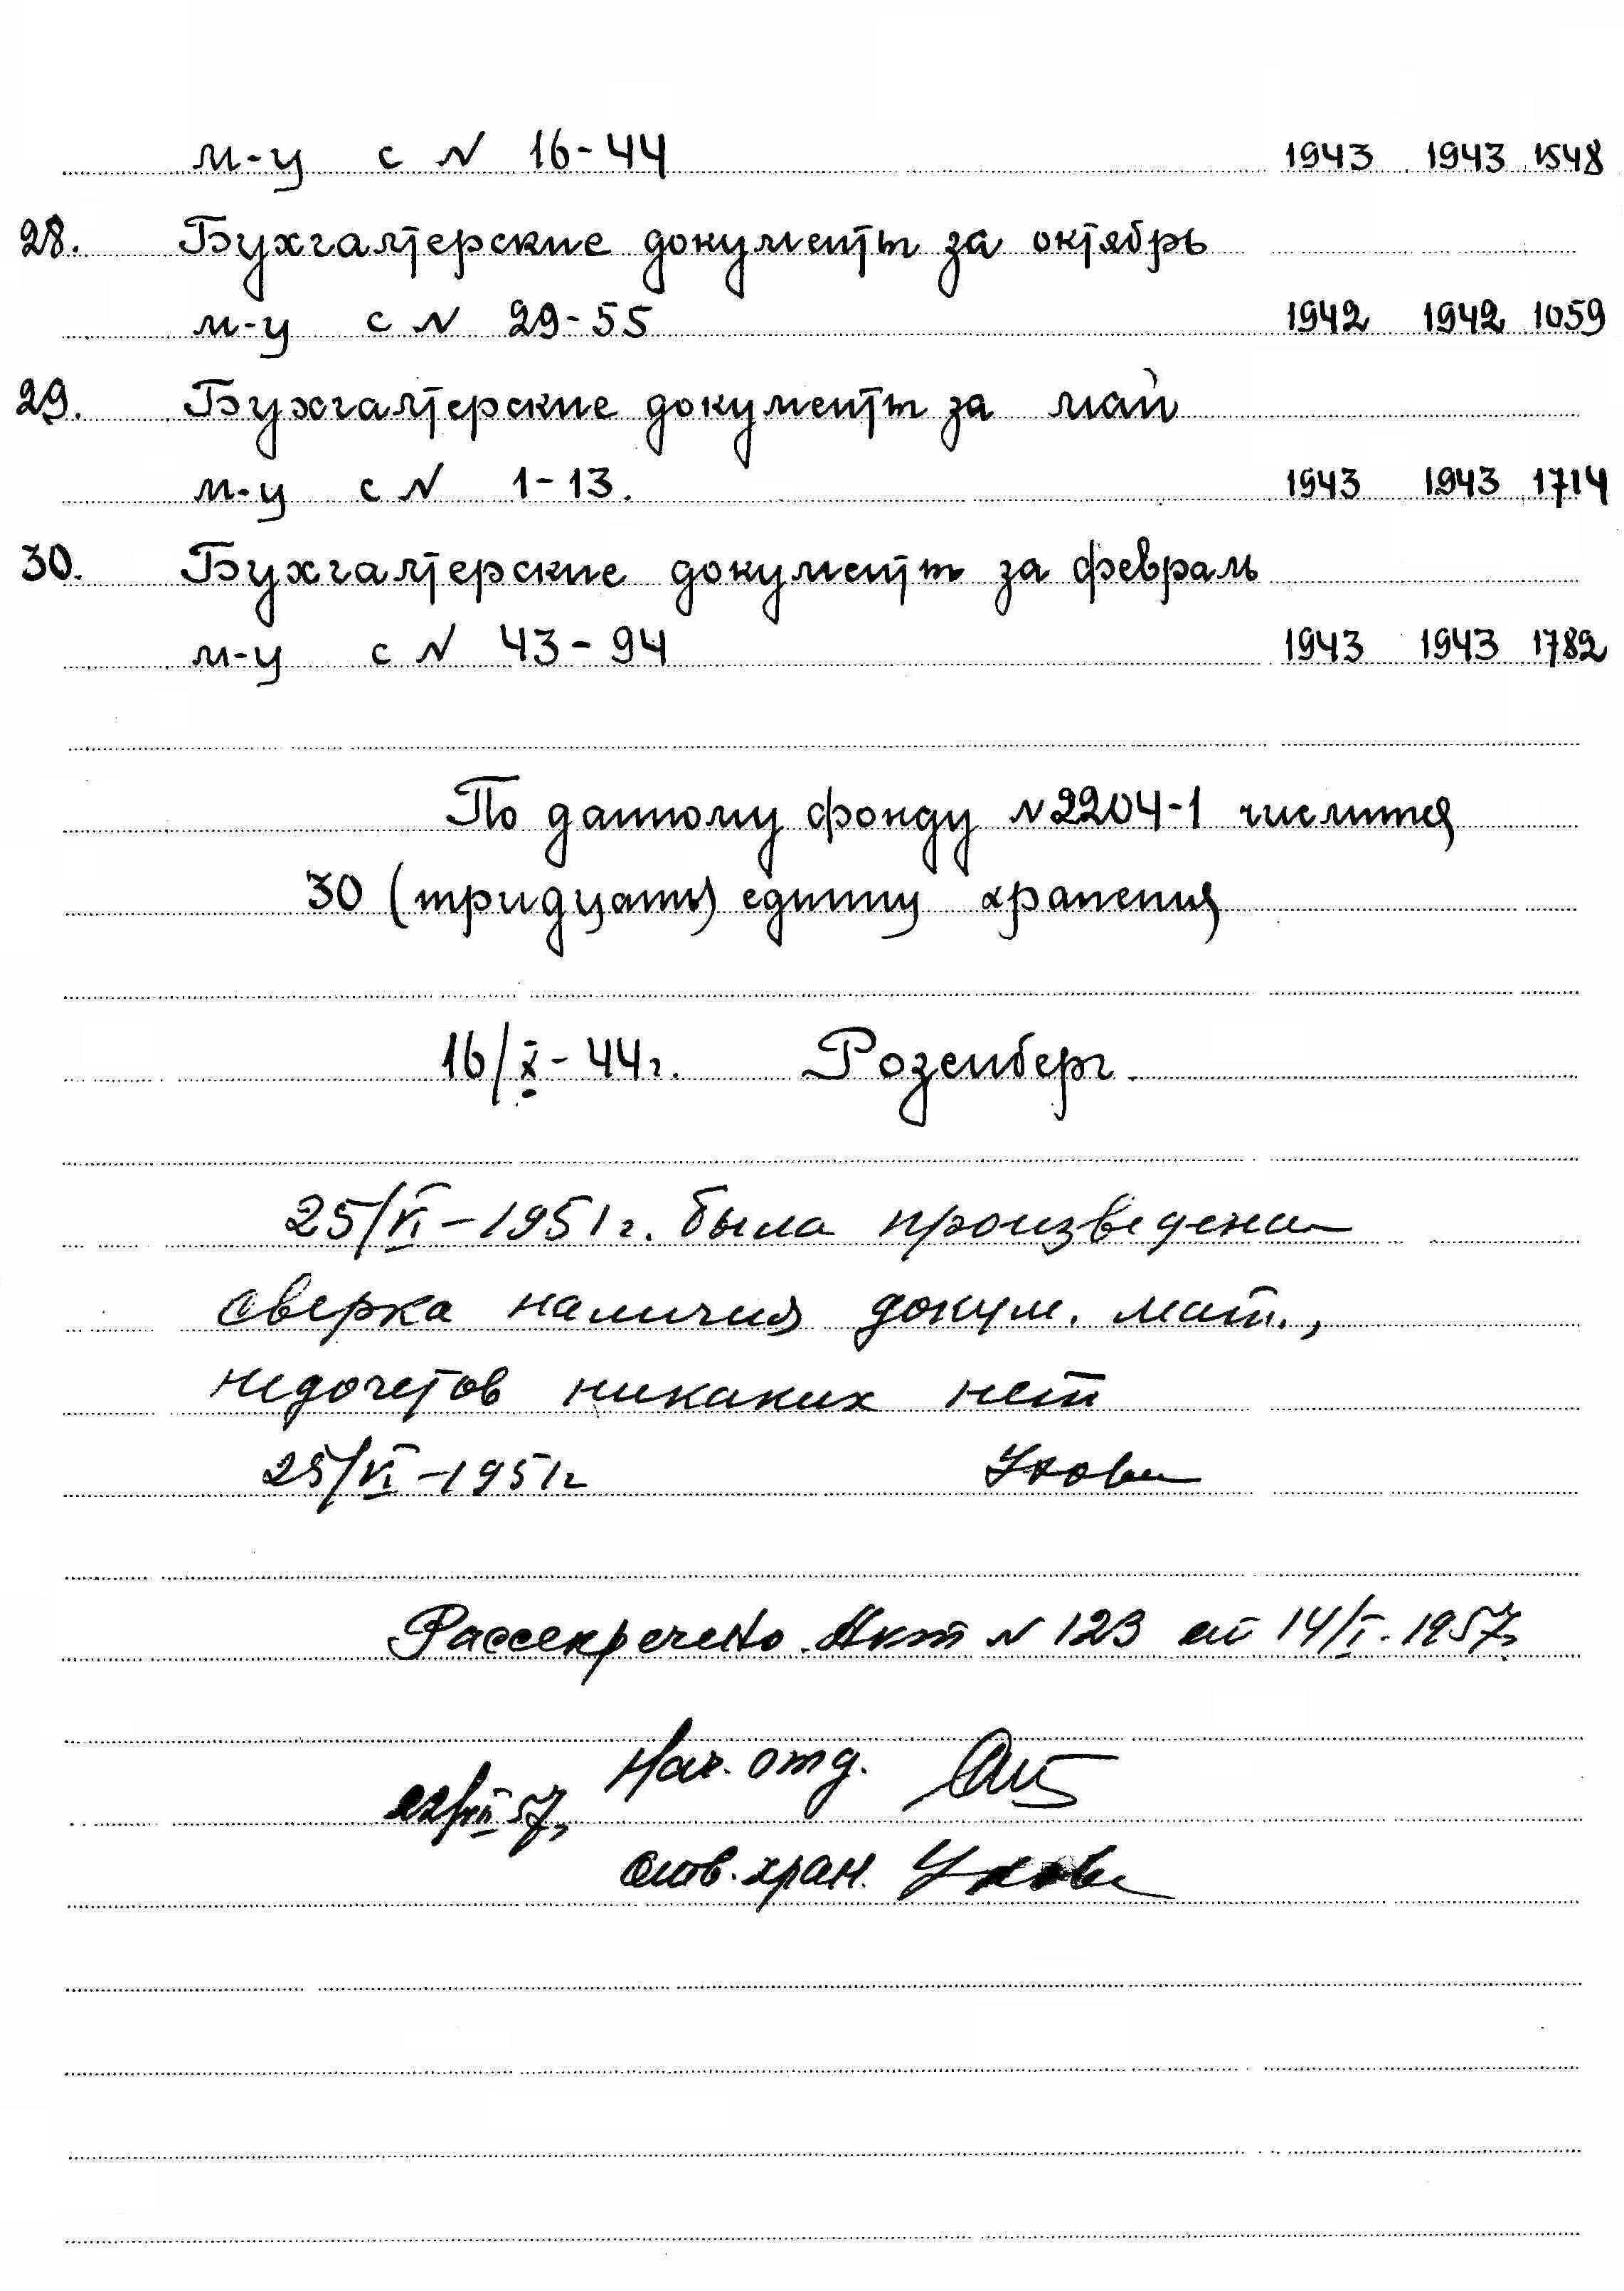 м-ц с № 16-44 1943 1943 1548
28. Бухгалтерские документы за октябрь
м-ц с № 29-55 1942 1942 1059
29. Бухгалтерские документы за май
м-ц с № 1-13. 1943 1943 1714
30. Бухгалтерские документы за февраль
м-ц с № 43-94 1943 1943 1782
По данному фонду №2204-1 числится
30 (тридцать) единиц хранения
16/X-44г. Розенберг
25/VI-1951г. была произведена
сверка наличия докум. мат.,
недочетов никаких нет
25/VI-1951г
Рассекречено. Акт № 123 от 14/I.1957г
Нач. отд.
22/XII 57г
Отв. хран.